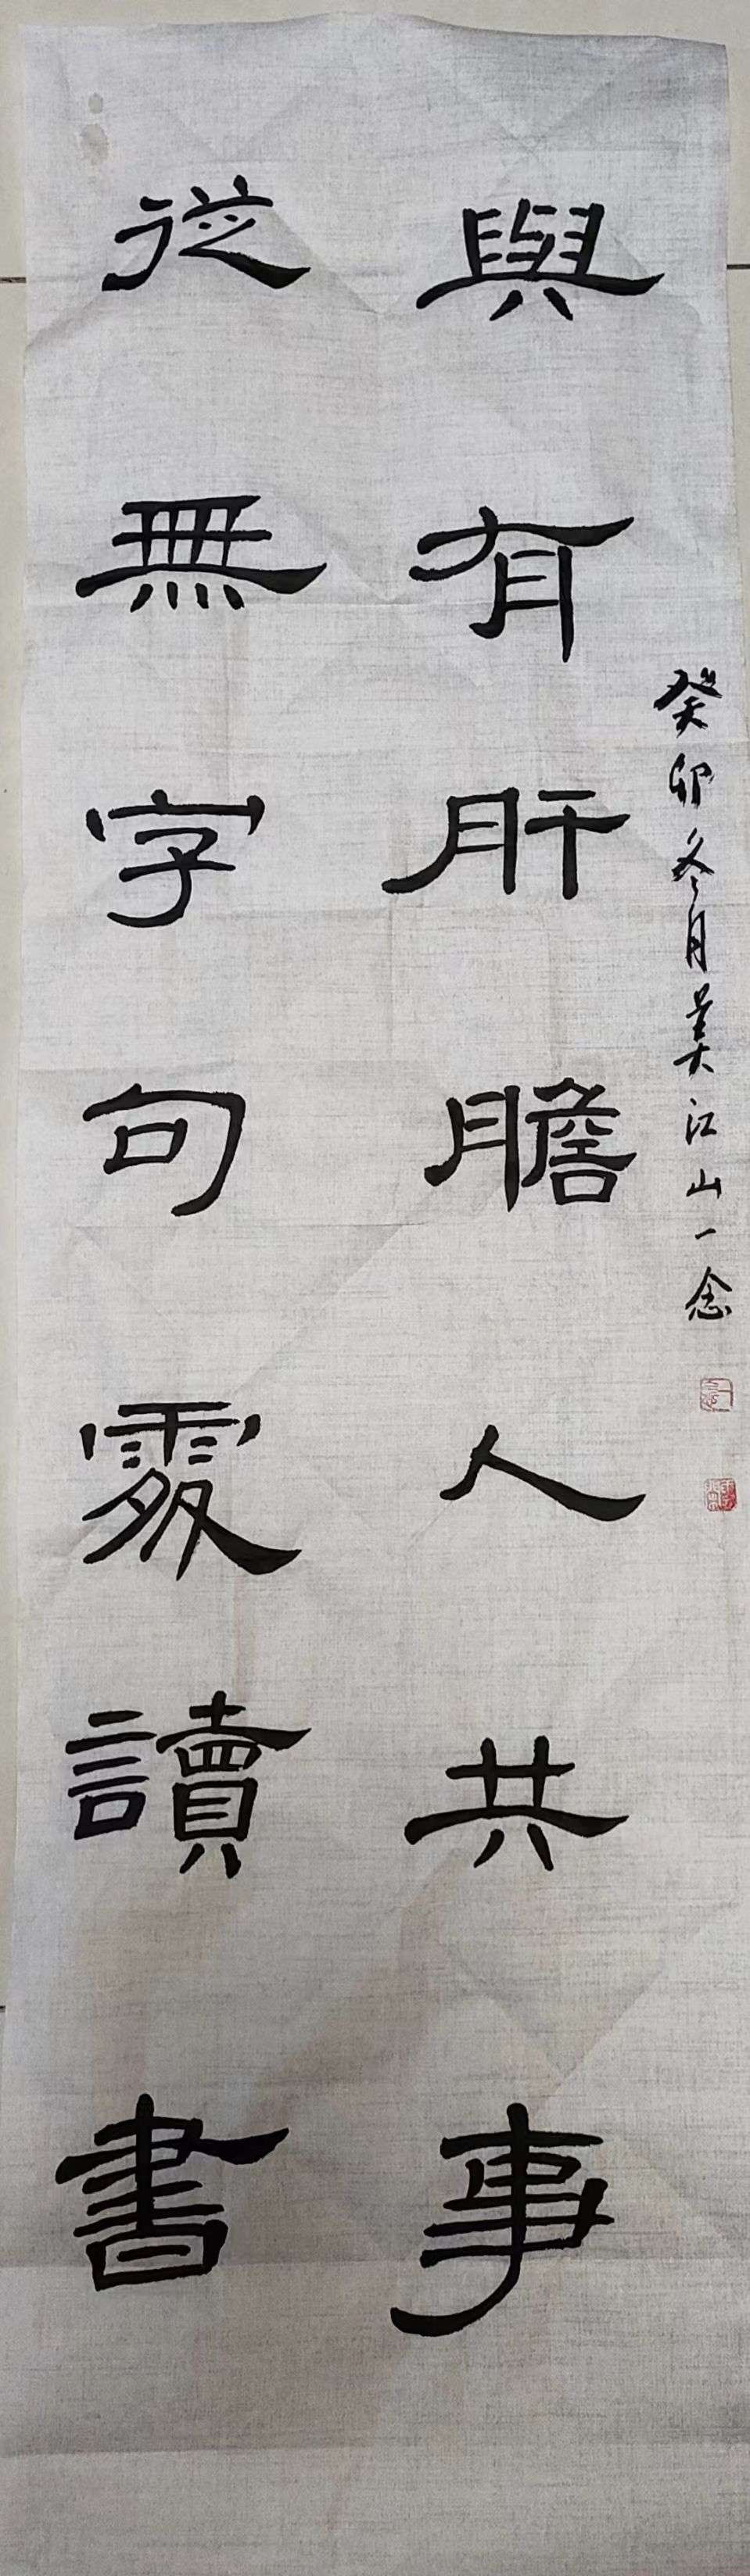 與有肝膽人共事
從無字句處讀書
癸卯冬月美江山一念